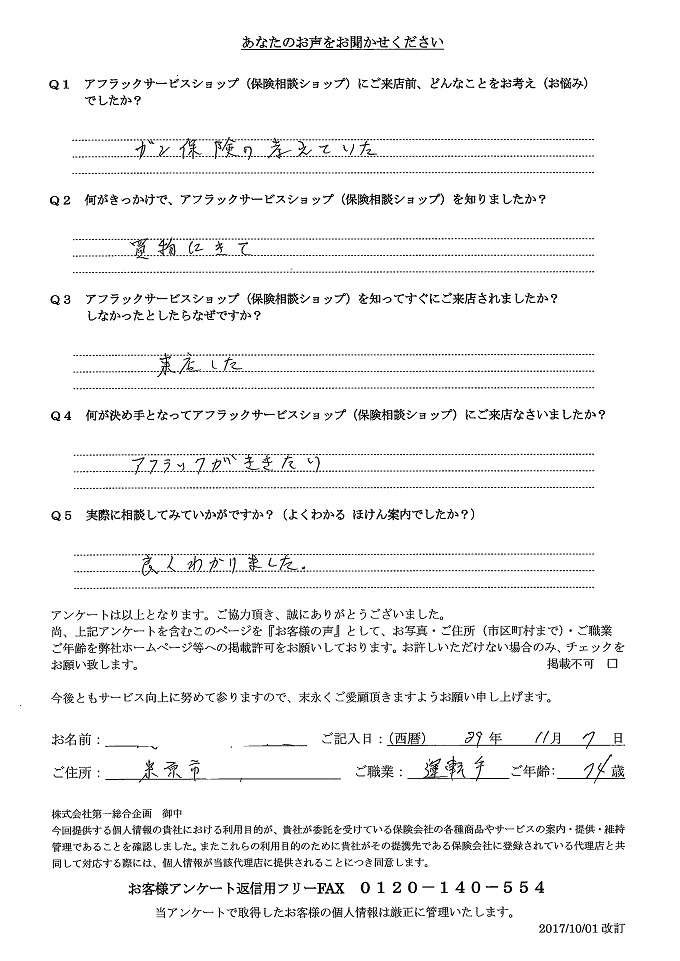 あなたのお声をお聞かせください
Q1 アフラックサービスショップ（保険相談ショップ）にご来店前、どんなことをお考え（お悩み）
でしたか？
ガン保険の考えていた
Q2 何がきっかけで、アフラックサービスショップ（保険相談ショップ）を知りましたか？
買物にきて
Q3 アフラックサービスショップ（保険相談ショップ）を知ってすぐにご来店されましたか？
しなかったとしたらなぜですか？
来店した
Q4 何が決め手となってアフラックサービスショップ（保険相談ショップ）にご来店なさいましたか？
アフラックがききたり
Q5 実際に相談してみていかがですか？（よくわかる ほけん案内でしたか？）
良くわかりました。
アンケートは以上となります。ご協力頂き、誠にありがとうございました。
尚、上記アンケートを含むこのページを『お客様の声』として、お写真・ご住所（市区町村まで）・ご職業
ご年齢を弊社ホームページ等への掲載許可をお願いしております。お許しいただけない場合のみ、チェックを
お願い致します。 掲載不可 □
今後ともサービス向上に努めて参りますので、末永くご愛顧頂きますようお願い申し上げます。
お名前： ご記入日：（西暦） 29 年 11月 7 日
ご住所： 市 ご職業： 運転手 ご年齢： 74 歳
株式会社第一総合企画 御中
今回提供する個人情報の貴社における利用目的が、貴社が委託を受けている保険会社の各種商品やサービスの案内・提供・維持
管理であることを確認しました。またこれらの利用目的のために貴社がその提携先である保険会社に登録されている代理店と共
同して対応する際には、個人情報が当該代理店に提供されることにつき同意します。
お客様アンケート返信用フリーFAX 0120－140－554
当アンケートで取得したお客様の個人情報は厳正に管理いたします。
2017/10/01 改訂